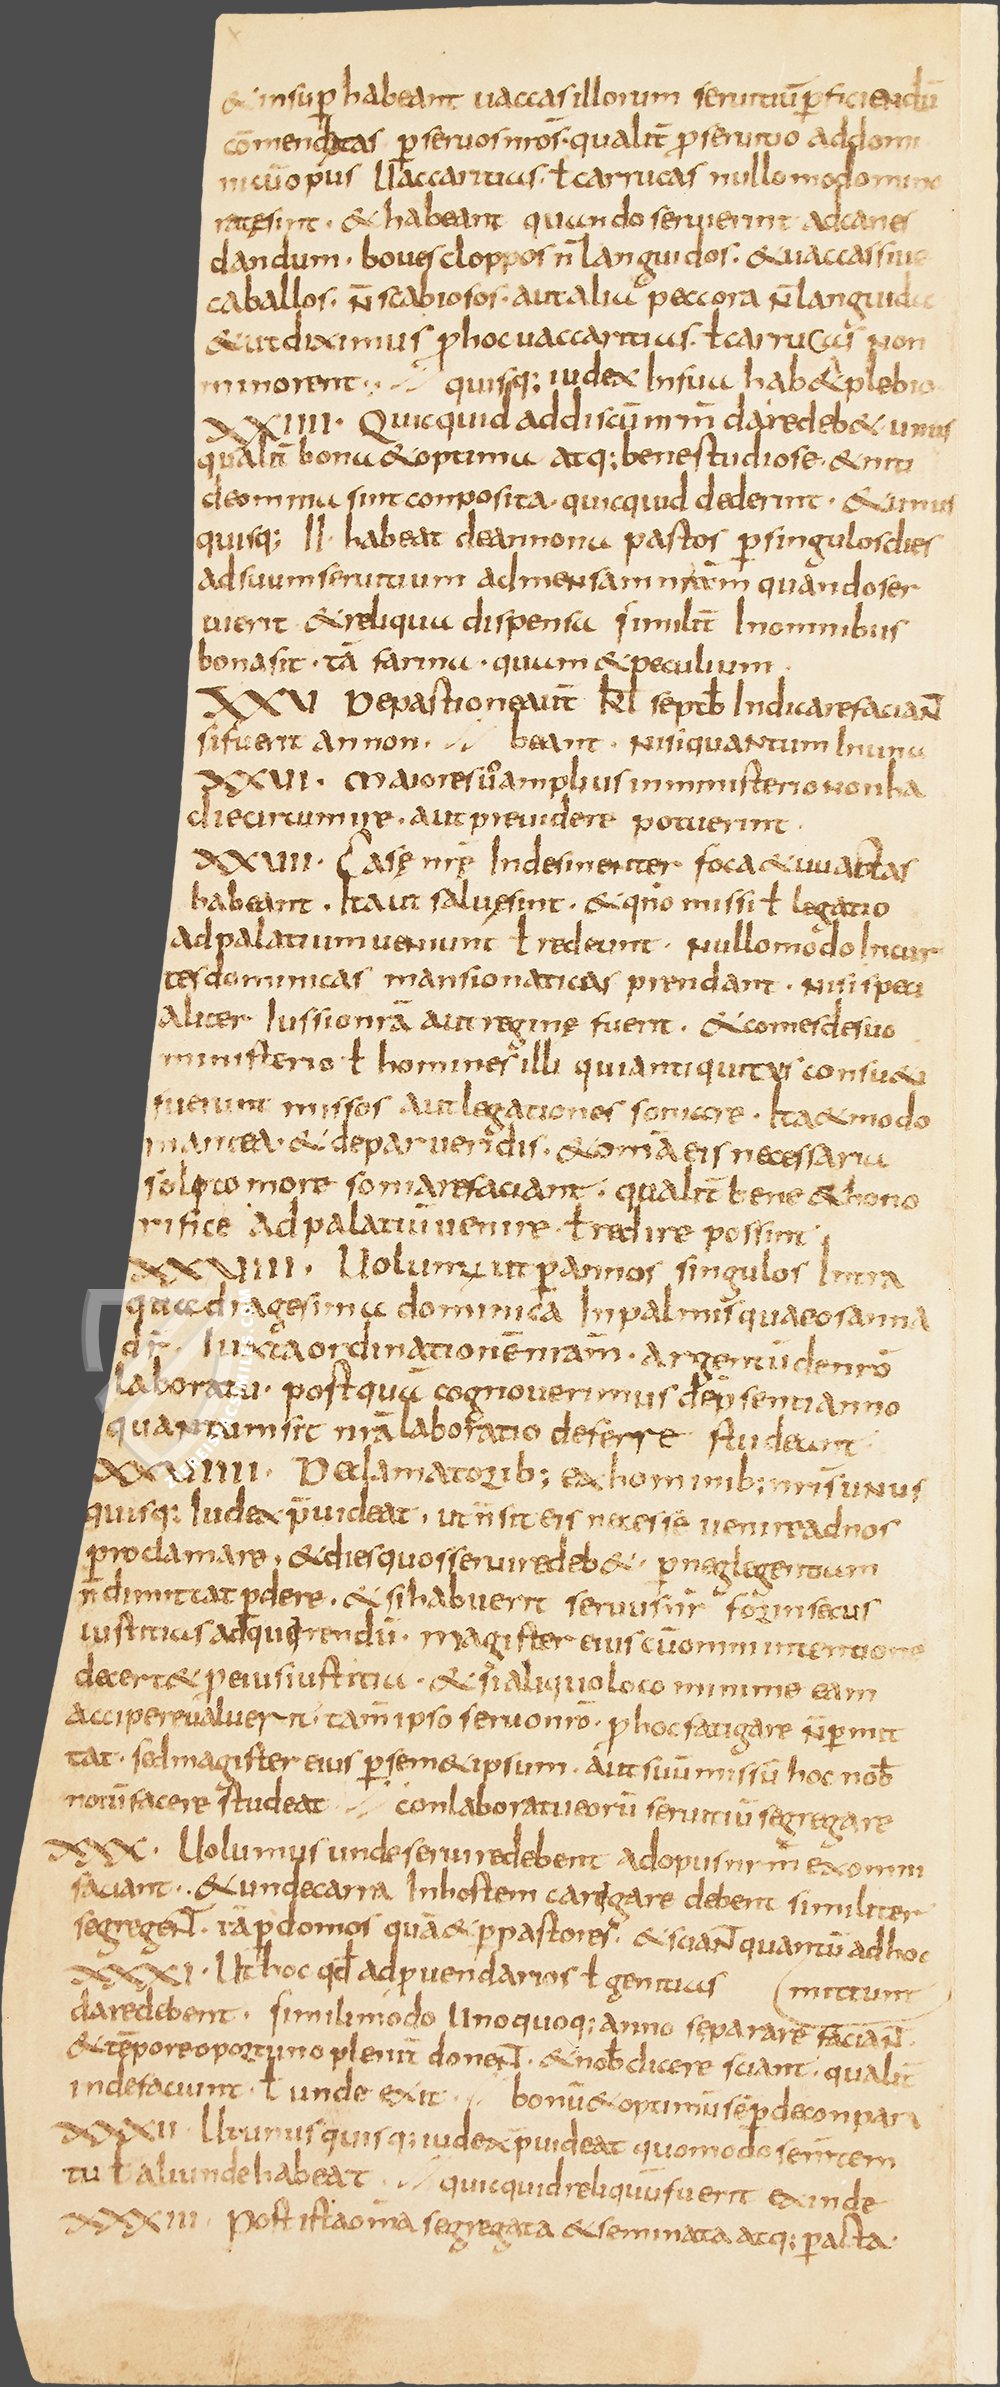 & insup̄ habeant uaccas illorum seruitiū p̄ficiendū
cōmendatas p̄ seruos nrōs. qualit̄ p̄ seruitio ad domi
nicū opus uaccaritias. ł carrucas nullo modo mino
ratę sint. & habeant quando seruierint ad canes
dandum. boues cloppos n̄ languidos. & uaccas siue
caballos. n̄ scabiosos. aut alia peccora n̄ languida
& ut diximus p̄ hoc uaccaritias. ł carrucas non
minorent. quisq; iudex In sua hab& plebio
XXIIII. Quicquid ad discum nr̄m dare deb& unus
qualit̄ bona & optima atq; bene studiose. & niti
de omnia sint conposita. quicquid dederint. & unus
quisq; II. habeat de annona pastos p̄ singulos dies
ad suum seruitium ad mensam nrām quando ser
uierit & reliqua dispensa similit̄ In omnibus
bona sit. tā farina. quam & peculium.
XXV De pastione aut̄ kl septb̄ Indicare facian̄
si fuerit an non. beant. nisi quantum In una
XXVI. Maiores uō amplius in ministerio non ha
die circumire. aut preuidere potuerint.
XXVII. Casę nrę Indesinenter foca & uuactas
habeant. Ita ut saluę sint. & qn̄o missi ł legatio
ad palatium ueniunt ł redeunt. nullo modo In cur
tes dominicas mansionaticas prendant. nisi speci
aliter Iussio nrā aut reginę fuerit. & comes de suo
ministerio ł homines illi qui antiquitus consu&i
fuerunt missos aut legationes soniare. Ita & modo
in antea. & de parueridis. & omīa eis necessaria
solito more soniare faciant. qualit̄ bene & hono
rifice ad palatiū uenire ł redire possint
XXVIII. Uolumus ut p̄ annos singulos Intra
quadragesima dominica In palmis quae osanna
dr̄. Iuxta ordinationē nrām. argentū de nrō
laboratu. postquā cognouerimus de p̄senti anno
quantum sit nrā laboratio deferre studeant
XXVIIII. De clamatorib; ex hominib; nris unus
quisq; Iudex p̄uideat. ut n̄ sit eis necesse uenire ad nos
proclamare. & dies quos seruire deb& p̄ neglegentiam
n̄ dimittat p̄dere. & si habuerit seruus nr̄ forinsecus
iustitias ad querendū. magister eius cū omni intentione
decert& p̄ eius iustitia. & si aliquo loco minime eam
accipere ualuerit. tam ipso seruo nrō. p̄ hoc fatigare n̄ p̄mit
tat. sed magister eius p̄ sem&ipsum. aut suū missū hoc nob̄
notū facere studeat conlaboratu eorū seruitiū segregare
XXX. Uolumus unde seruire debent ad opus nr̄m ex omni
faciant. & unde carra In hostem carigare debent similiter
segregen̄. tā p̄ domos quā & p̄ pastores. & scian̄ quantū ad hoc
XXXI. Ut hoc qd̄ ad p̄uendarios ł genitias mittunt
dare debent. simili modo Uno quoq; anno separare facian̄.
& tēpore oportuno plenit̄ donen̄. & nob̄ dicere sciant. qualit̄
inde faciunt. ł unde exit. bonū & optimū sēp̄ de conpara
XXXII Ut unusquisq; iudex p̄uideat quomodo sem̄tem
tu ł aliunde habeat. quicquid reliquū fuerit exinde
XXXIII. Post ista omīa segregata & seminata atq; p̄acta.